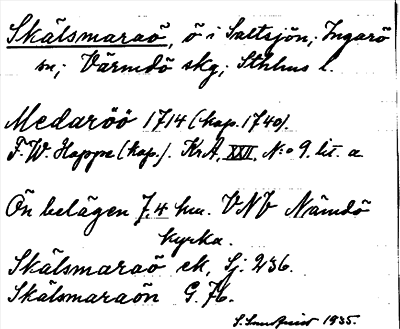 Skälsmaraö, ö i Saltsjön; Ingarö
sn; Värmdö skg; Sthlms l.
Medaröö 1714 (kop. 1740).
F. W. Hoppe (kop.). KrA, XXII, No 9 lit. a
Ön belägen 7,4 km. VNV Nämdö
kyrka.
Skälsmaraö ek, Sj. 236.
Skälsmaraön G. 76.
1935.